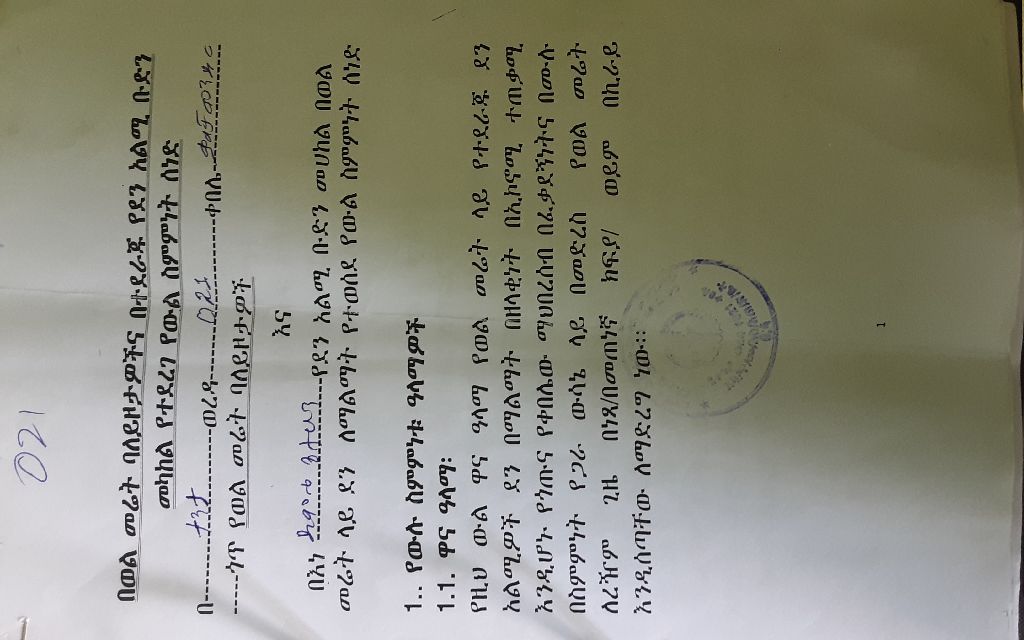 021
በወል መሬት ባለይዞታዎችና በተደራጁ የደን አልሚ ቡድን
መካከል የተደረገ የውል ስምምነት ሰነድ
በ-----------ተንታ-----------ወረዳ-----------021-----------ቀበሌ
-----ጎጥ የወል መሬት ባለይዞታዎች
እና
በእነ -----------የደን አልሚ ቡድን መሀከል በወል
መሬት ላይ ደን ለማልማት የተወሰደ የውል ስምምነት ሰነድ
1.. የውሉ ስምምነቱ ዓላማዎች
1.1. ዋና ዓላማ፡
የዚህ ውል ዋና ዓላማ የወል መሬት ላይ የተደራጁ ደን
አልሚዎች ደን በማልማት በዘላቂነት በኢኮኖሚ ተጠቃሚ
እንዲሆኑ የጎጡና የቀበሌው ማህበረሰብ በፈቃደኝነትና በሙሉ
በስምምነት የጋራ ውሳኔ ላይ በመድረስ የወል መሬት
ለረዥም ጊዜ በነጻ/በመጠነኛ ክፍያ/ ወይም በኪራይ
እንዲሰጣቸው ለማድረግ ነው፡፡
1